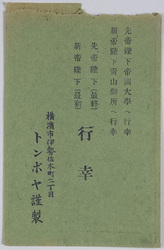 先帝陛下帝國大學ヘ行幸
新帝陛下青山御所ヘ行幸
先帝陛下(最終)
新帝陛下(最初)
行幸
橫濱市伊勢佐木町二丁目
トンボヤ謹製